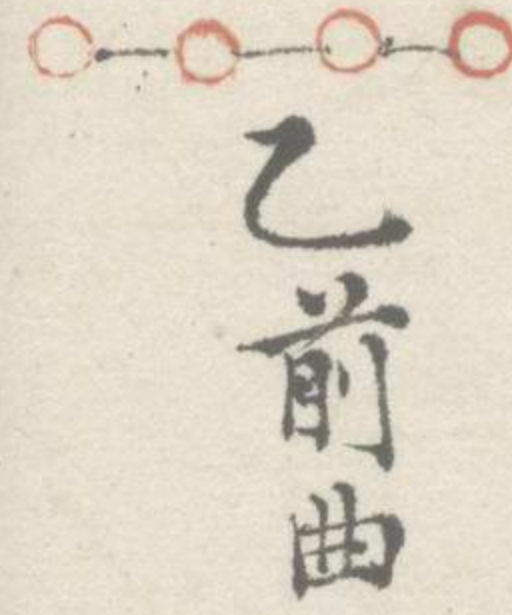 乙前曲